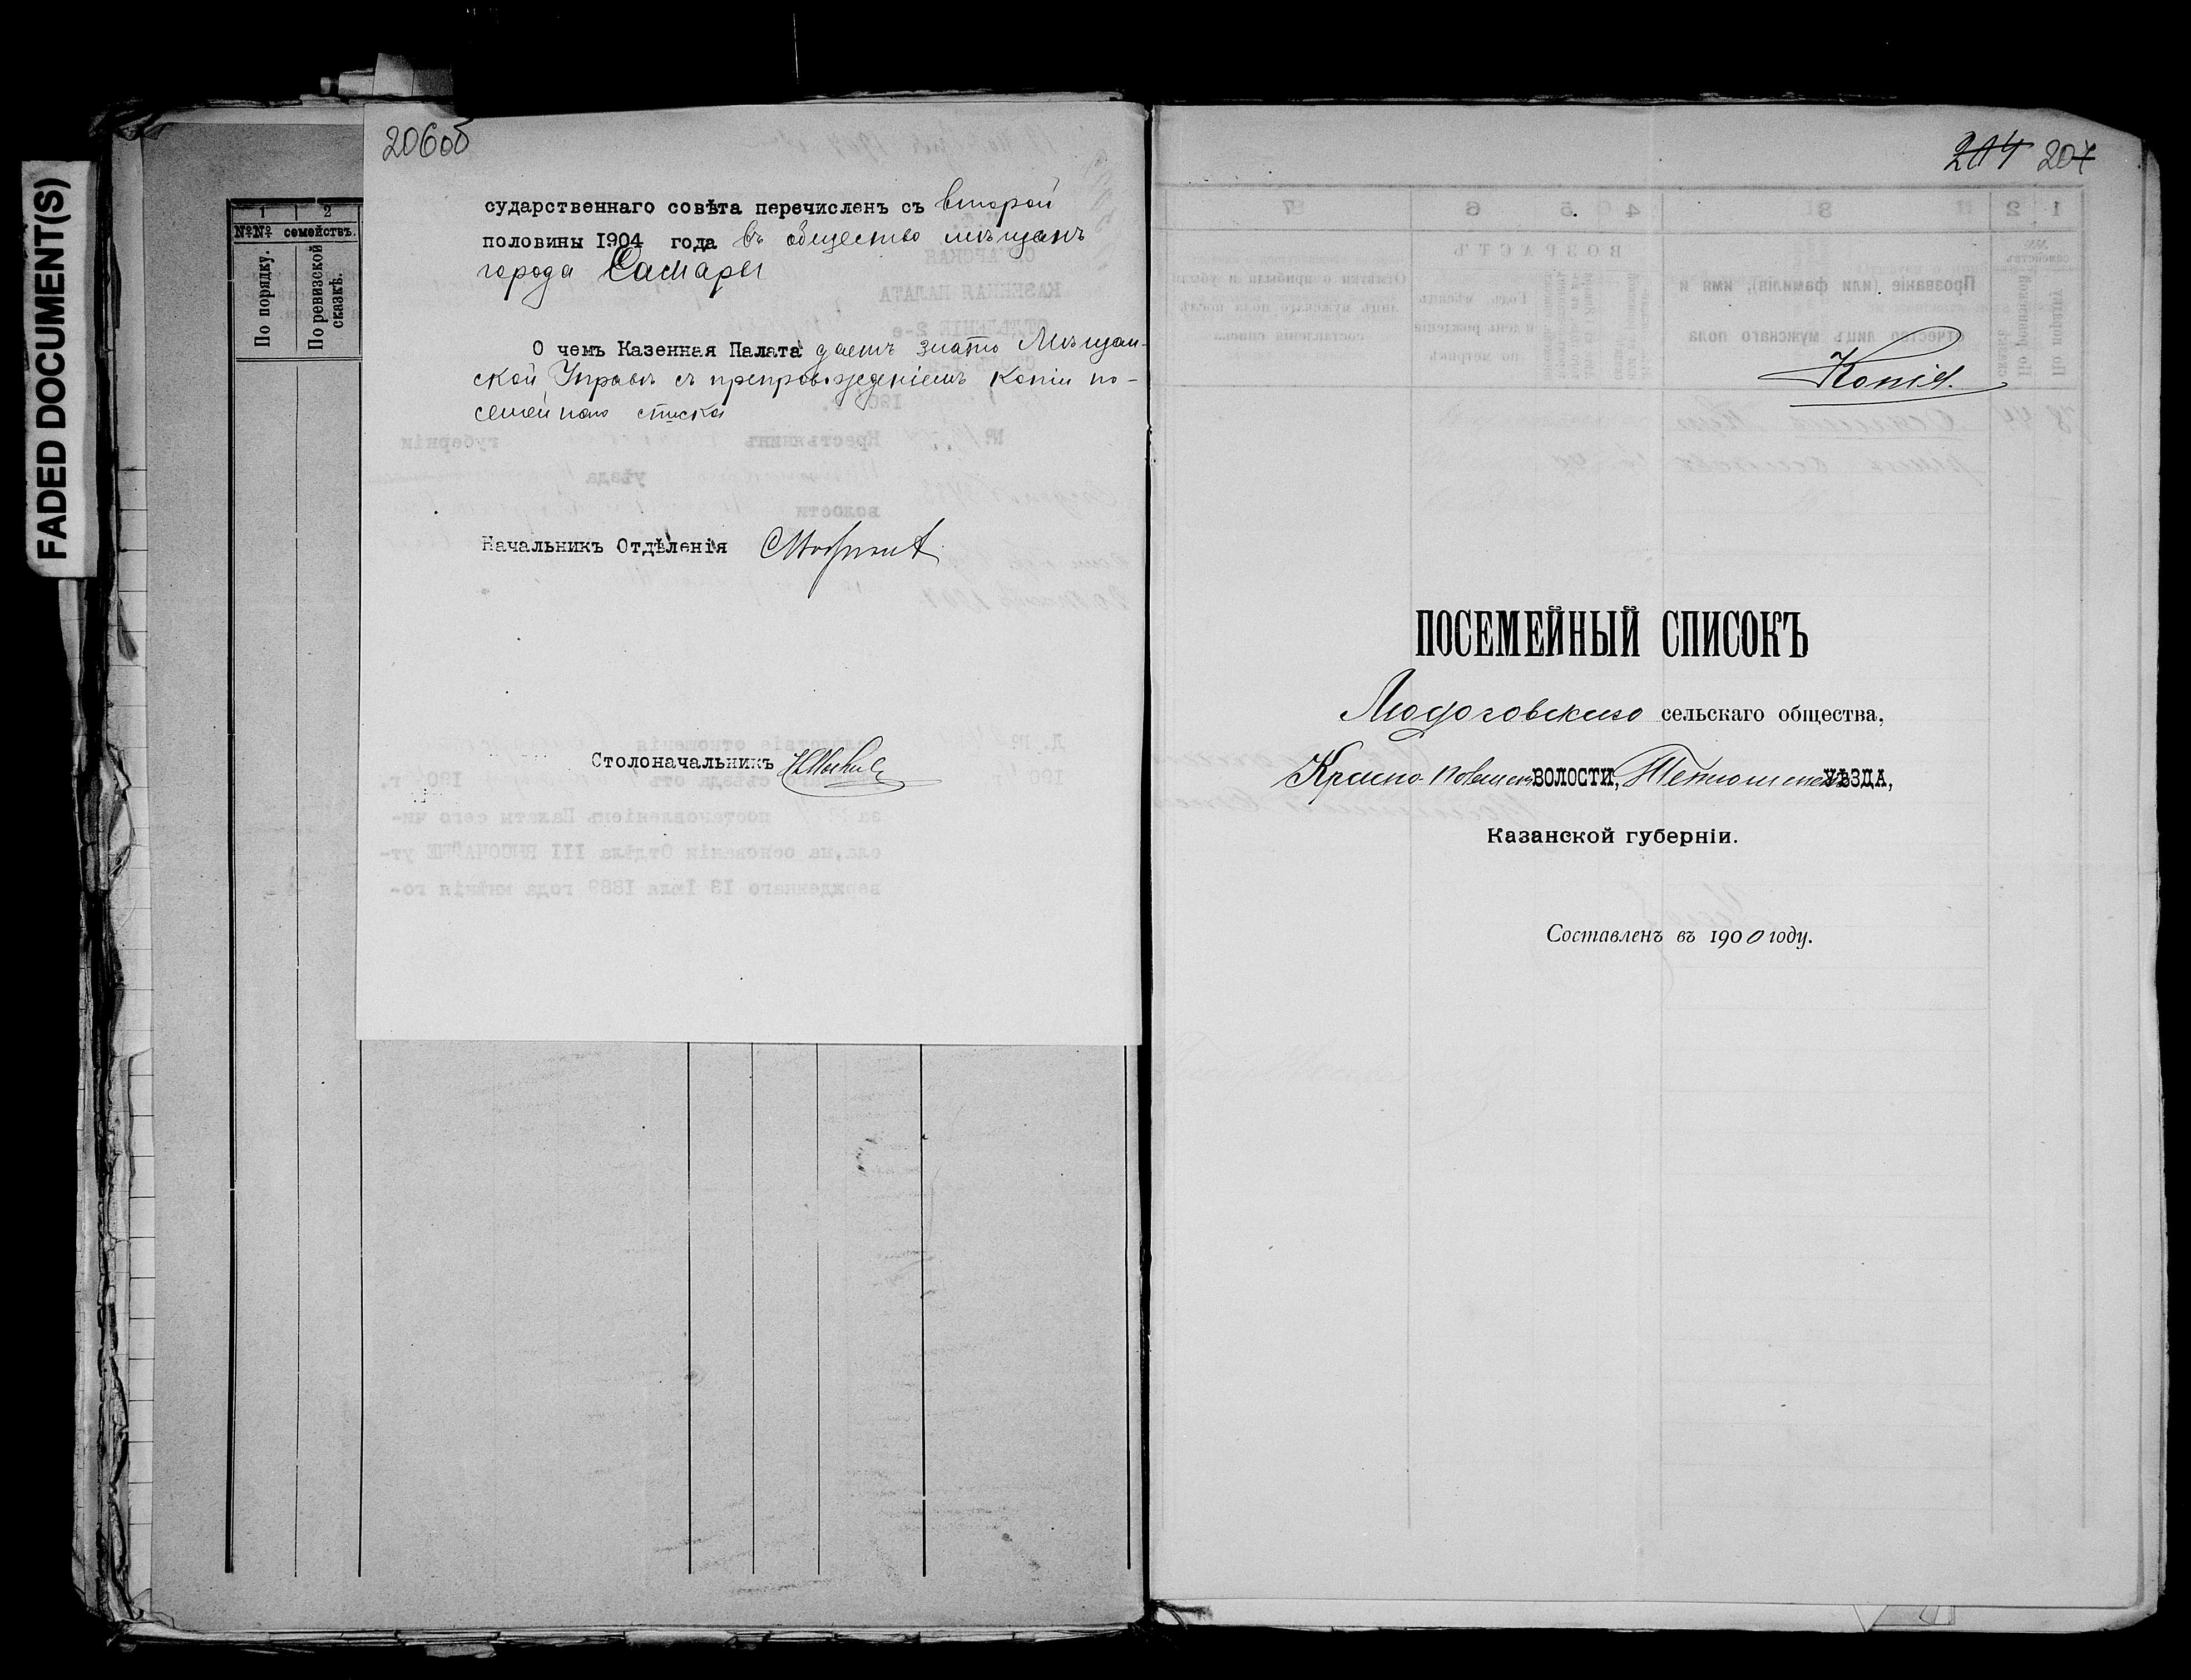 FADED DOCUMENT(S)
206об
1 2
№№ семействъ.
По порядку.
По ревизской сказкѣ.
сударственнаго совѣта перечисленъ съ второй
половины 1904 года въ общество мѣщанъ
города Самары
О чемъ Казенная Палата даетъ знать Мѣщан-
ской Управѣ съ препровожденіемъ копіи по-
семейнаго списка
Начальникъ Отдѣленія
Столоначальникъ
204 207
Копія.
ПОСЕМЕЙНЫЙ СПИСОКЪ
Людоговскаго сельскаго общества,
ВОЛОСТИ, Тетюшскаго УѢЗДА,
Казанской губерніи.
Составленъ въ 1900 году.